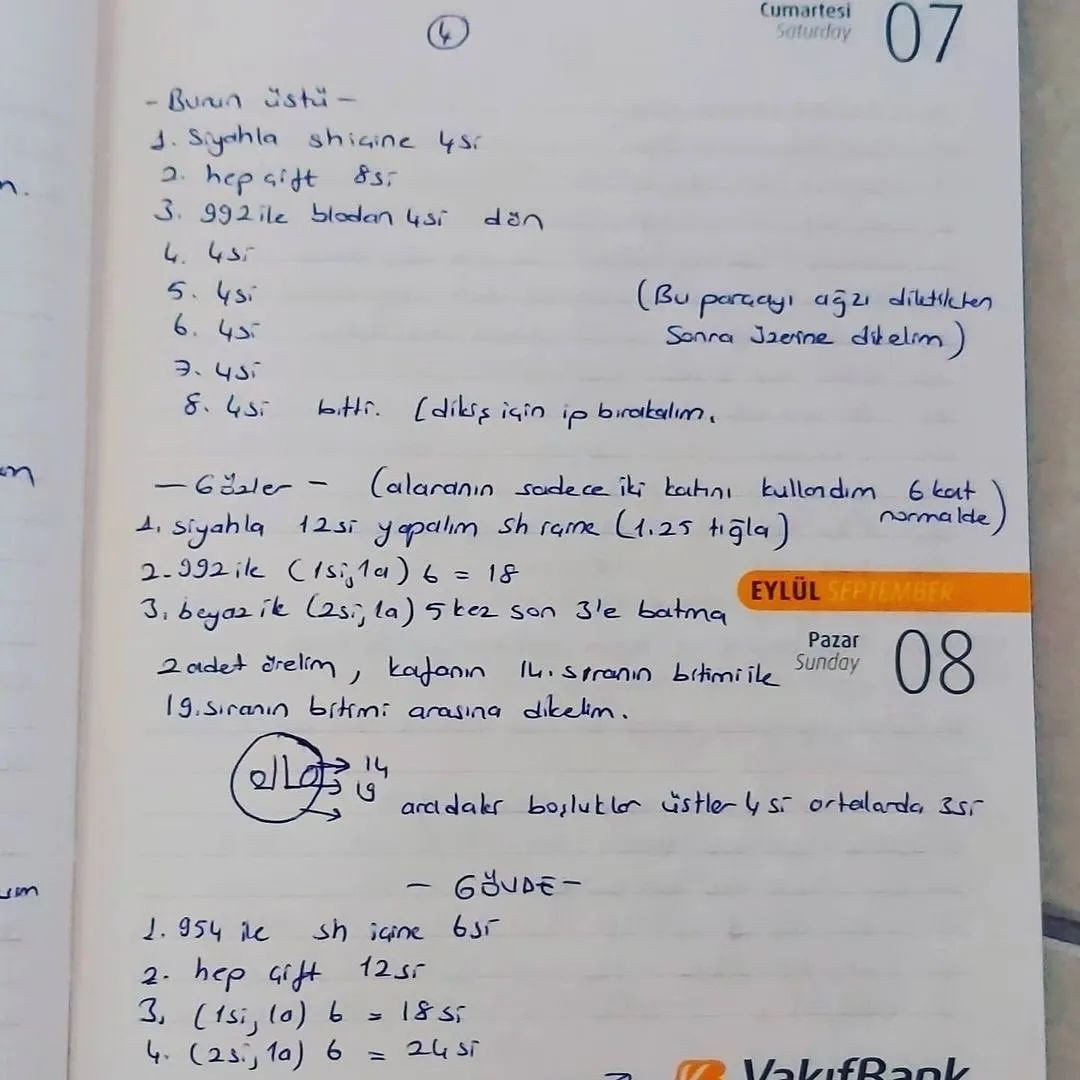 4
Cumartesi
Saturday
07
- Burun üstü -
1. Siyahla sh içine 4si
2. hep çift 8si
3. 992 ile blodan 4si dön
4. 4si
5. 4si
(Bu parçayı ağzı diktikten
6. 4si
Sonra üzerine dikelim)
7. 4si
8. 4si bitti. (dikiş için ip bırakalım.
- Gözler - (alaranın sadece iki katını kullandım 6 kat
normalde)
1. siyahla 12si yapalım sh içine (1.25 tığla)
2. 992 ile (1si, 1a) 6 = 18
EYLÜL SEPTEMBER
3. beyaz ile (2si, 1a) 5 kez son 3'e batma
Pazar
Sunday
08
2 adet örelim, kafanın 14. sıranın bitimi ile
19. sıranın bitimi arasına dikelim.
14
19
aradaki boşluklar üstler 4 si ortalarda 3si
- GÖVDE -
1. 954 ile sh içine 6si
2. hep çift 12si
3. (1si, 1a) 6 = 18 si
4. (2si, 1a) 6 = 24 si
VakıfBank